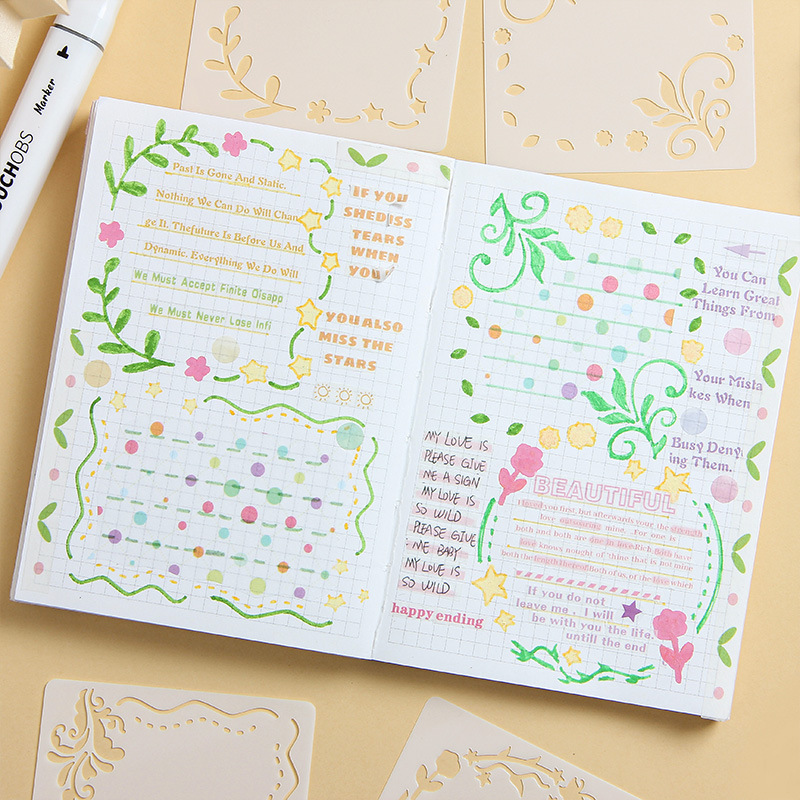 UCHOBS Marker
Past Is Gone And Static.
Nothing We Can Do Will Chan
ge It. Thefuture Is Before Us And
Dynamic. Everything We Do Will
We Must Accept Finite Disapp
We Must Never Lose Infi
IF YOU
SHEDISS
TEARS
WHEN
YOU
YOU ALSO
MISS THE
STARS
You Can
Learn Great
Things From
Your Mista
kes When
Busy Deny
ing Them.
MY LOVE IS
PLEASE GIVE
ME A SIGN
MY LOVE IS
SO WILD
PLEASE GIVE
ME BABY
MY LOVE IS
SO WILD
happy ending
BEAUTIFUL
I loved you first: but afterwards your the strength
love outsoaring mine, For one is
both and both are one in love Rich Both have
love knows nought of 'thine that is not mine
both the length thereof Both of us, of the love which
If you do not
leave me , I will
be with you the life.
untill the end